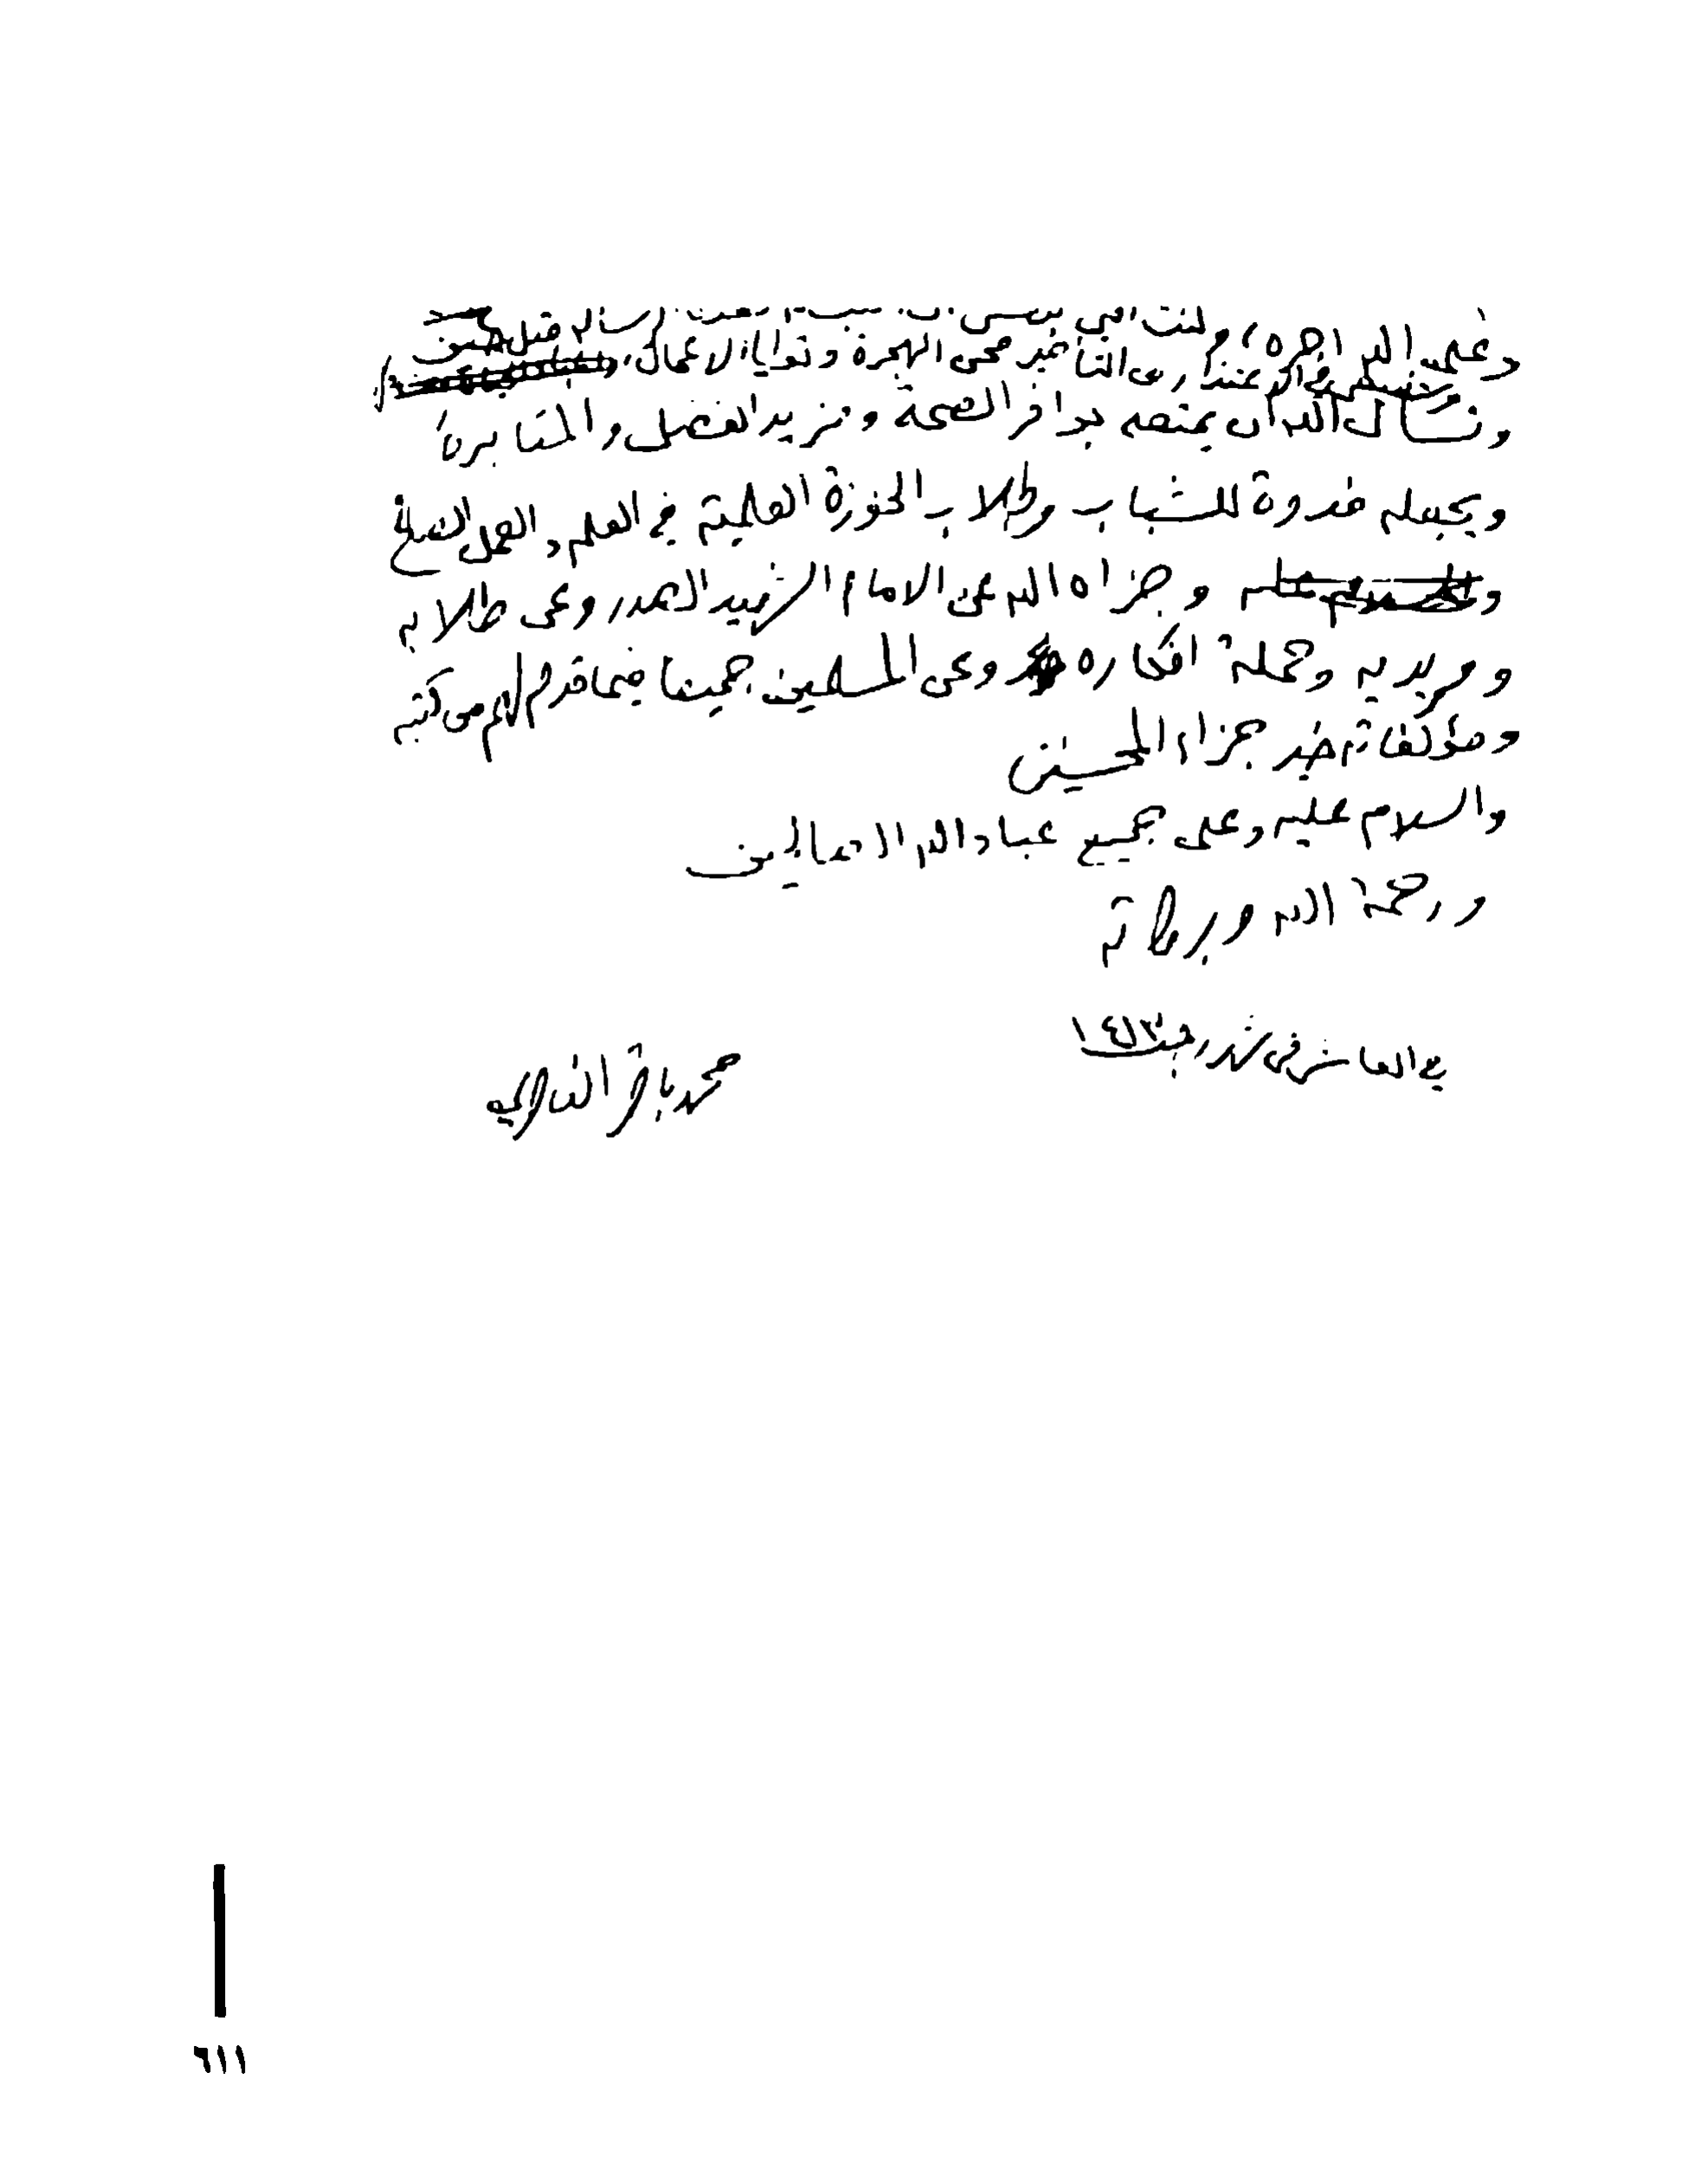 وعلى الله اجره، وكنت رسالة قبل
عن التأخير محن الهجرة ونوايا الاعمال،
ونسأل الله أن يمتعه بوافر الصحة ومزيد الفضل والمثابرة
ويجعله قدوة للشباب وطلاب الحوزة العلمية في العلم والعمل الصالح
وجزاه الله عن الامام الشهيد الصدر وعن طلابه
ومريديه وحملة افكاره وعن المسلمين جميعا فيما قدم لهم من كتبه
ومؤلفاته خير جزاء المحسنين
والسلام عليه وعلى جميع عباد الله الصالحين
ورحمة الله وبركاته
في العاشر من شهر رجب ١٤١٣
محمد باقر الناصري
٦١١